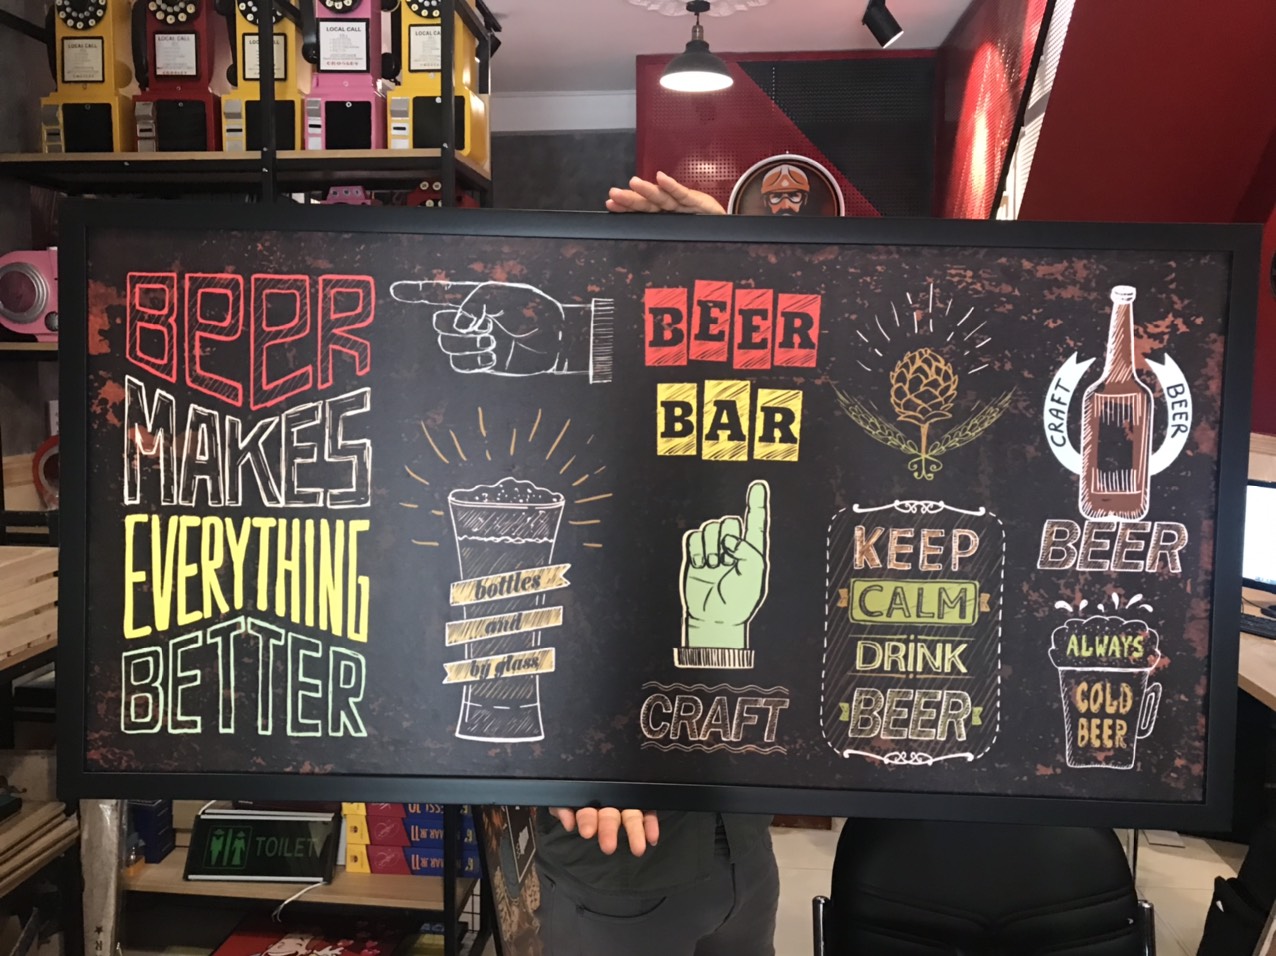 LOCAL CALL
LOCAL CALL
LOCAL CALL
LOCAL CALL
BEER
MAKES
EVERYTHING
BETTER
bottles
and
by glass
BEER
BAR
CRAFT
KEEP
CALM
DRINK
BEER
CRAFT BEER
BEER
ALWAYS
COLD
BEER
TOILET